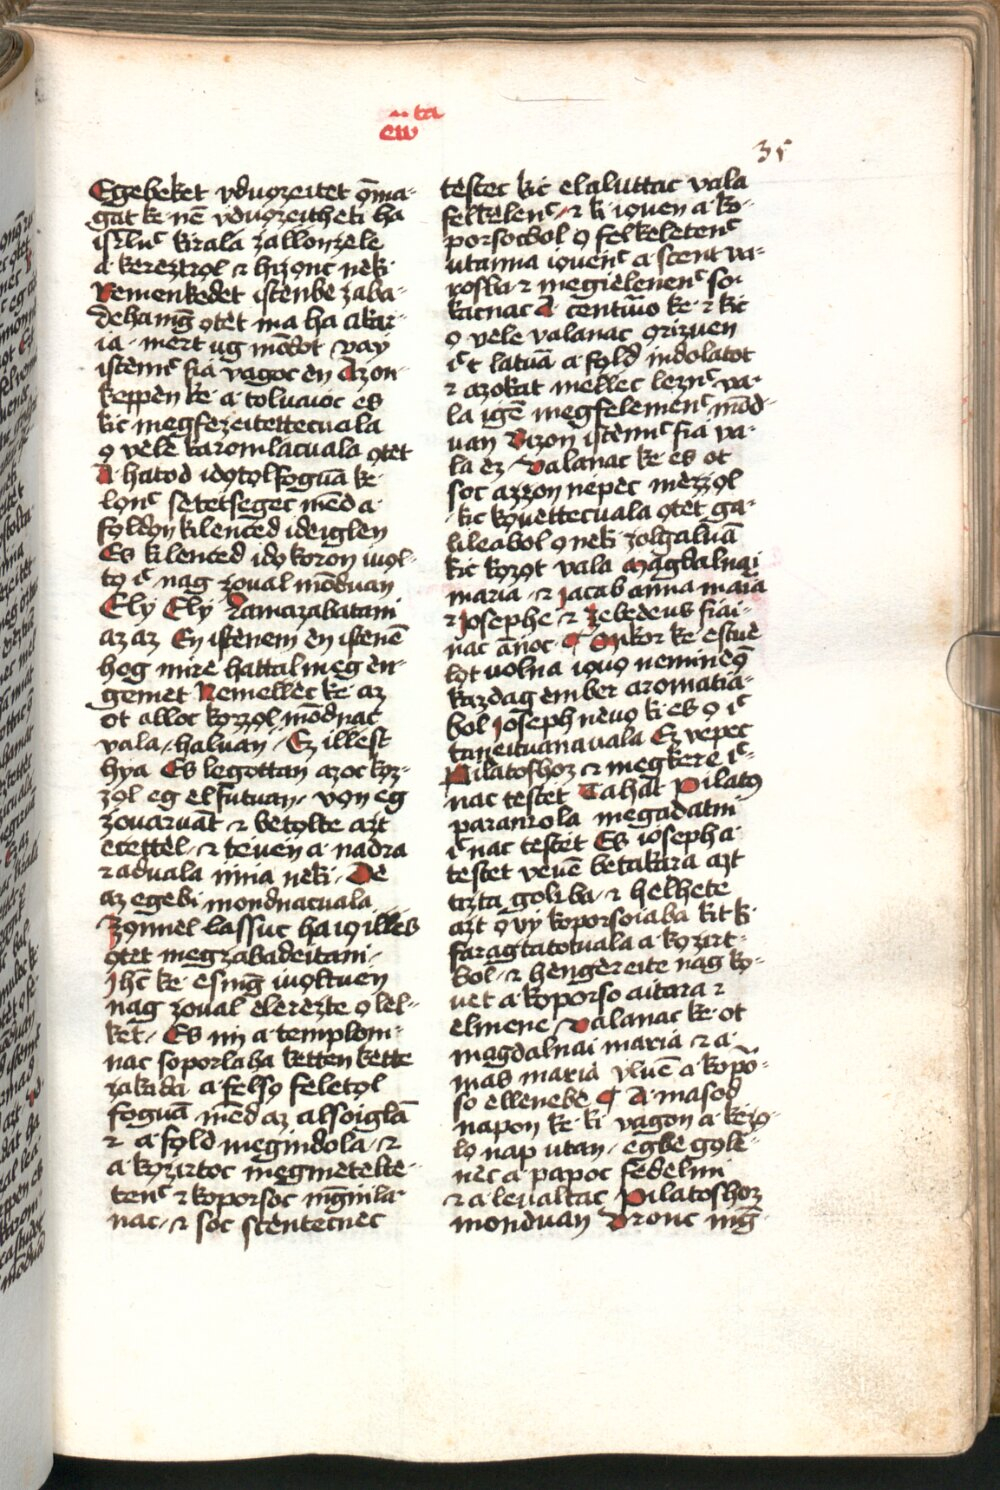 ew̄ta
35
Egebeket vduozeitet ōma-
gat ke nē vduozeitheti ha
isrlnᶜ kirala zallonzele
a kereztrol ⁊ hizonc neki
Remenkedet istenbe zaba-
dehamḡ otet ma ha akar-
ia · mert ug mōdot vay
istennᶜ fia vagoc en Azon-
keppen ke a toluaioc es
kic megfezeitettecuala
o vele karomlacuala otet
A hatod idotol foguā ke
lonᶜ setetsegec mēd a
foldon kilenced ideiglen
Es kilenced ido koron iuol-
to iᶜ nag zoual mōduan
Ely Ely Lamazabatani
az az En istenem en istenē
hog mire hattal meg en-
gemet Nemellec ke az
ot alloc kozzol mōdnac
vala · haluan Ez illest
hya Es legottan azoc koz-
zol eg elfutuan · von eg
zouaruāt ⁊ betolte azt
ecettel · ⁊ teuen a nadra
⁊ aduala inna neki · De
az egebi mondnacuala
Zonnel lassuc ha io illes
otet megzabadeitani ·
Jhc̄ ke esmḡ iuoltuen
nag zoual elerezte o lel-
ket · Es im a templom-
nac soporlaha ketten kette
zakada a felso feletol
foguā mēd az alsoiglā
⁊ a fold megindola · ⁊
a kozirtoc megmetelte-
tenᶜ ⁊ koporsoc mḡnila-
nac · ⁊ soc scentecnec
testec kic elaluttac vala
felkelenᶜ · ⁊ ki iouen a ko-
porsocbol o felkeletenᶜ
utanna iouenᶜ a scent va-
rosba ⁊ megielenenᶜ so-
kacnac A centuio ke ⁊ kic
o vele valanac orizuen
iᶜt latuā a fold indolatot
⁊ azokat mellec leznᶜ va-
la igē megfelemenᶜ mōd-
uan Bizon istennᶜ fia va-
la ez · Valanac ke es ot
soc azzon nepec mezzol
kic kouettecuala otet ga-
lileabol o neki zolgaluā
kic kozot vala Magdalnai
maria · ⁊ Jacab anna maria
⁊ Josephe ⁊ Zebedeus fiai-
nac āńoc · ¶ Mikor ke estue
lot uolna iouo neminēo
kazdag ember aromatia-
bol Joseph neuo ki es o iᶜ
taneituanauala Ez vepec
Pilatoshoz ⁊ megkere iᶜ-
nac testet Tahat Pilato
parancola megadatni
iᶜnac testet Es ioseph a
testet veuē betakara azt
tizta golcba · ⁊ helhete
azt o vy koporsoiaba kit ki
faragtatotuala a kozirt-
bol · ⁊ hengereite nag ko-
uet a koporso aitara ⁊
elmene Valanac ke ot
magdalnai maria ⁊ a
mas maria vluē a kopo-
so ellenebe ¶ A masod
napon ke ki vagon a kezo-
lo nap utan · egbe gole-
nec a papoc fedelmi
⁊ a leualtac Pilatoshoz
monduan Vronc mḡ-